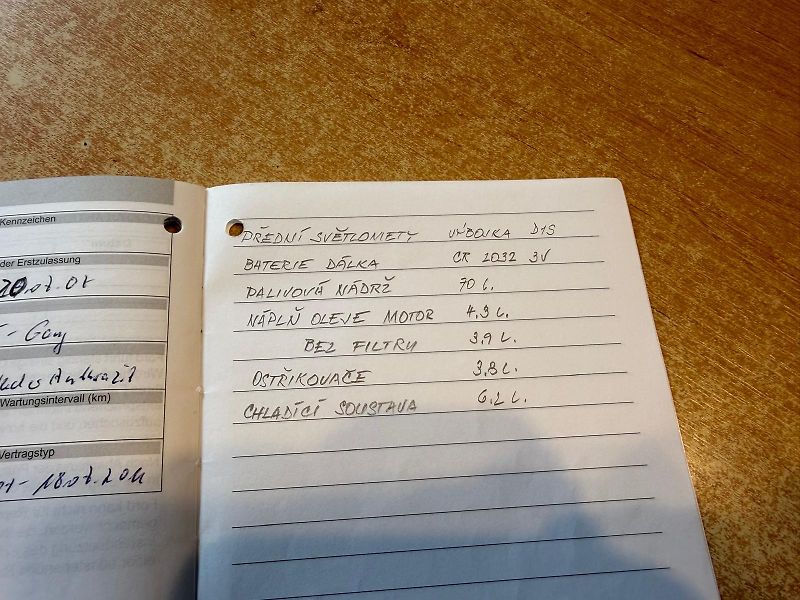 Kennzeichen
der Erstzulassung
Wartungsintervall (km)
Vertragstyp
PŘEDNÍ SVĚTLOMETY VÝBOJKA D1S
BATERIE DÁLKA CR 2032 3V
PALIVOVÁ NÁDRŽ 70 L.
NÁPLŇ OLEJE MOTOR 4,3 L.
BEZ FILTRU 3,9 L.
OSTŘIKOVAČE 3,8 L.
CHLADÍCÍ SOUSTAVA 6,2 L.